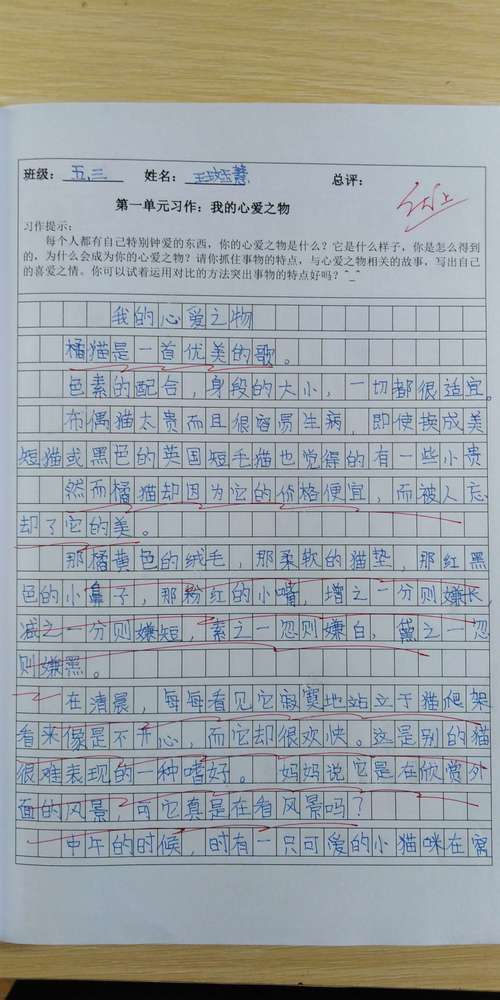 班级：五、三 姓名： 总评：
第一单元习作：我的心爱之物
习作提示：
每个人都有自己特别钟爱的东西，你的心爱之物是什么？它是什么样子，你是怎么得到
的，为什么会成为你的心爱之物？请你抓住事物的特点，与心爱之物相关的故事，写出自己
的喜爱之情。你可以试着运用对比的方法突出事物的特点好吗？^_^
我的心爱之物
橘猫是一首优美的歌。
色素的配合，身段的大小，一切都很适宜。
布偶猫太贵而且很容易生病，即使换成美
短猫或黑色的英国短毛猫也觉得的有一些小贵
然而橘猫却因为它的价格便宜，而被人忘
却了它的美。
那橘黄色的绒毛，那柔软的猫垫，那红黑
色的小鼻子，那粉红的小嘴，增之一分则嫌长，
减之一分则嫌短，素之一忽则嫌白，黛之一忽
则嫌黑。
在清晨，每每看见它寂寞地站立于猫爬架
看来像是不开心，而它却很欢快。这是别的猫
很难表现的一种嗜好。妈妈说它是在欣赏外
面的风景，可它真是在看风景吗？
中午的时候，时有一只可爱的小猫咪在窝